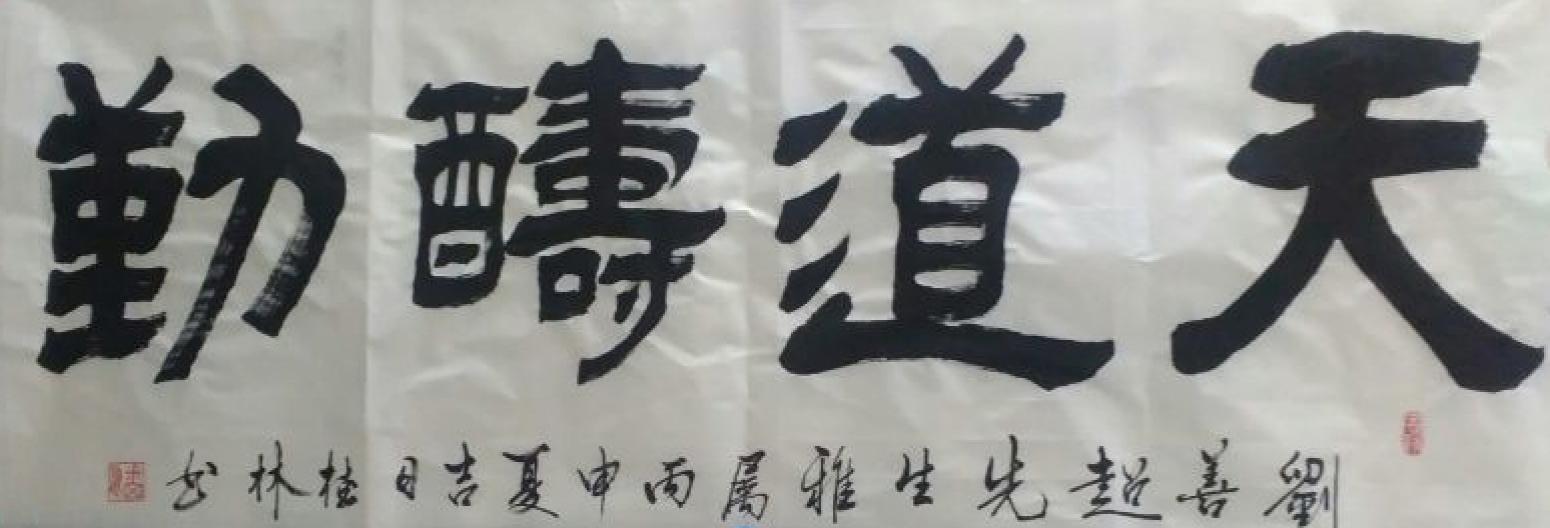 天道酬勤
劉善超先生雅属丙申夏吉日桂林书